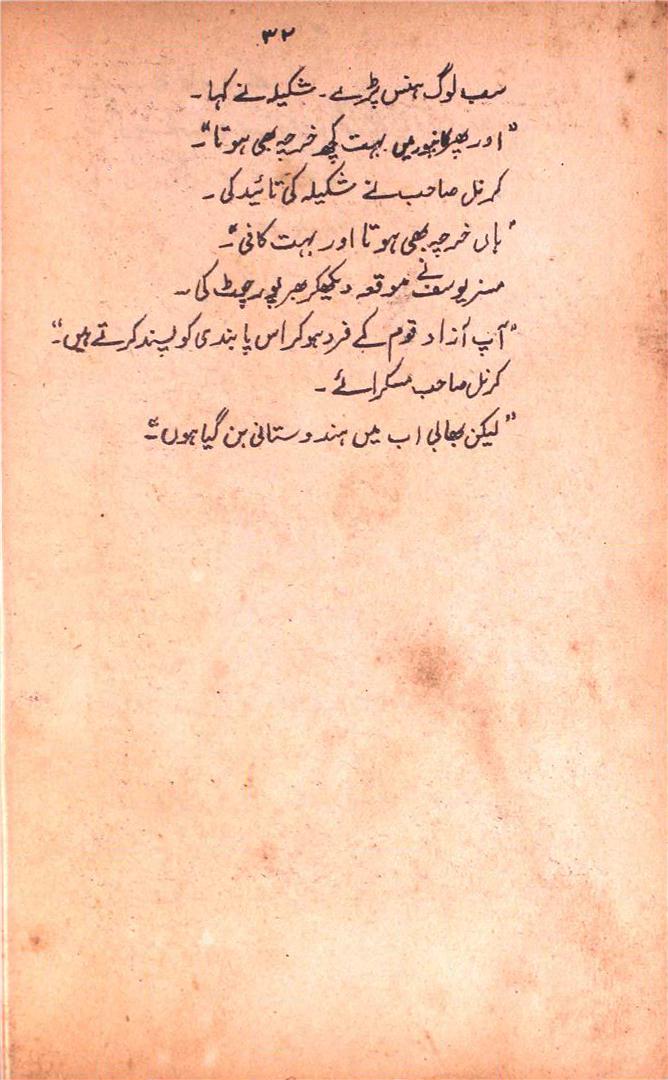 ۳۲
سب لوگ ہنس پڑے۔ شکیلہ نے کہا۔
"اور پھر کانپور میں بہت کچھ خرچہ بھی ہوتا"۔
کرنل صاحب نے شکیلہ کی تائید کی۔
"ہاں خرچہ بھی ہوتا اور بہت کافی"۔
مسز یوسف نے موقعہ دیکھکر بھرپور چوٹ کی۔
"آپ آزاد قوم کے فرد ہو کر اس پابندی کو پسند کرتے ہیں"۔
کرنل صاحب مسکرائے۔
"لیکن بھابی اب میں ہندوستانی بن گیا ہوں"۔